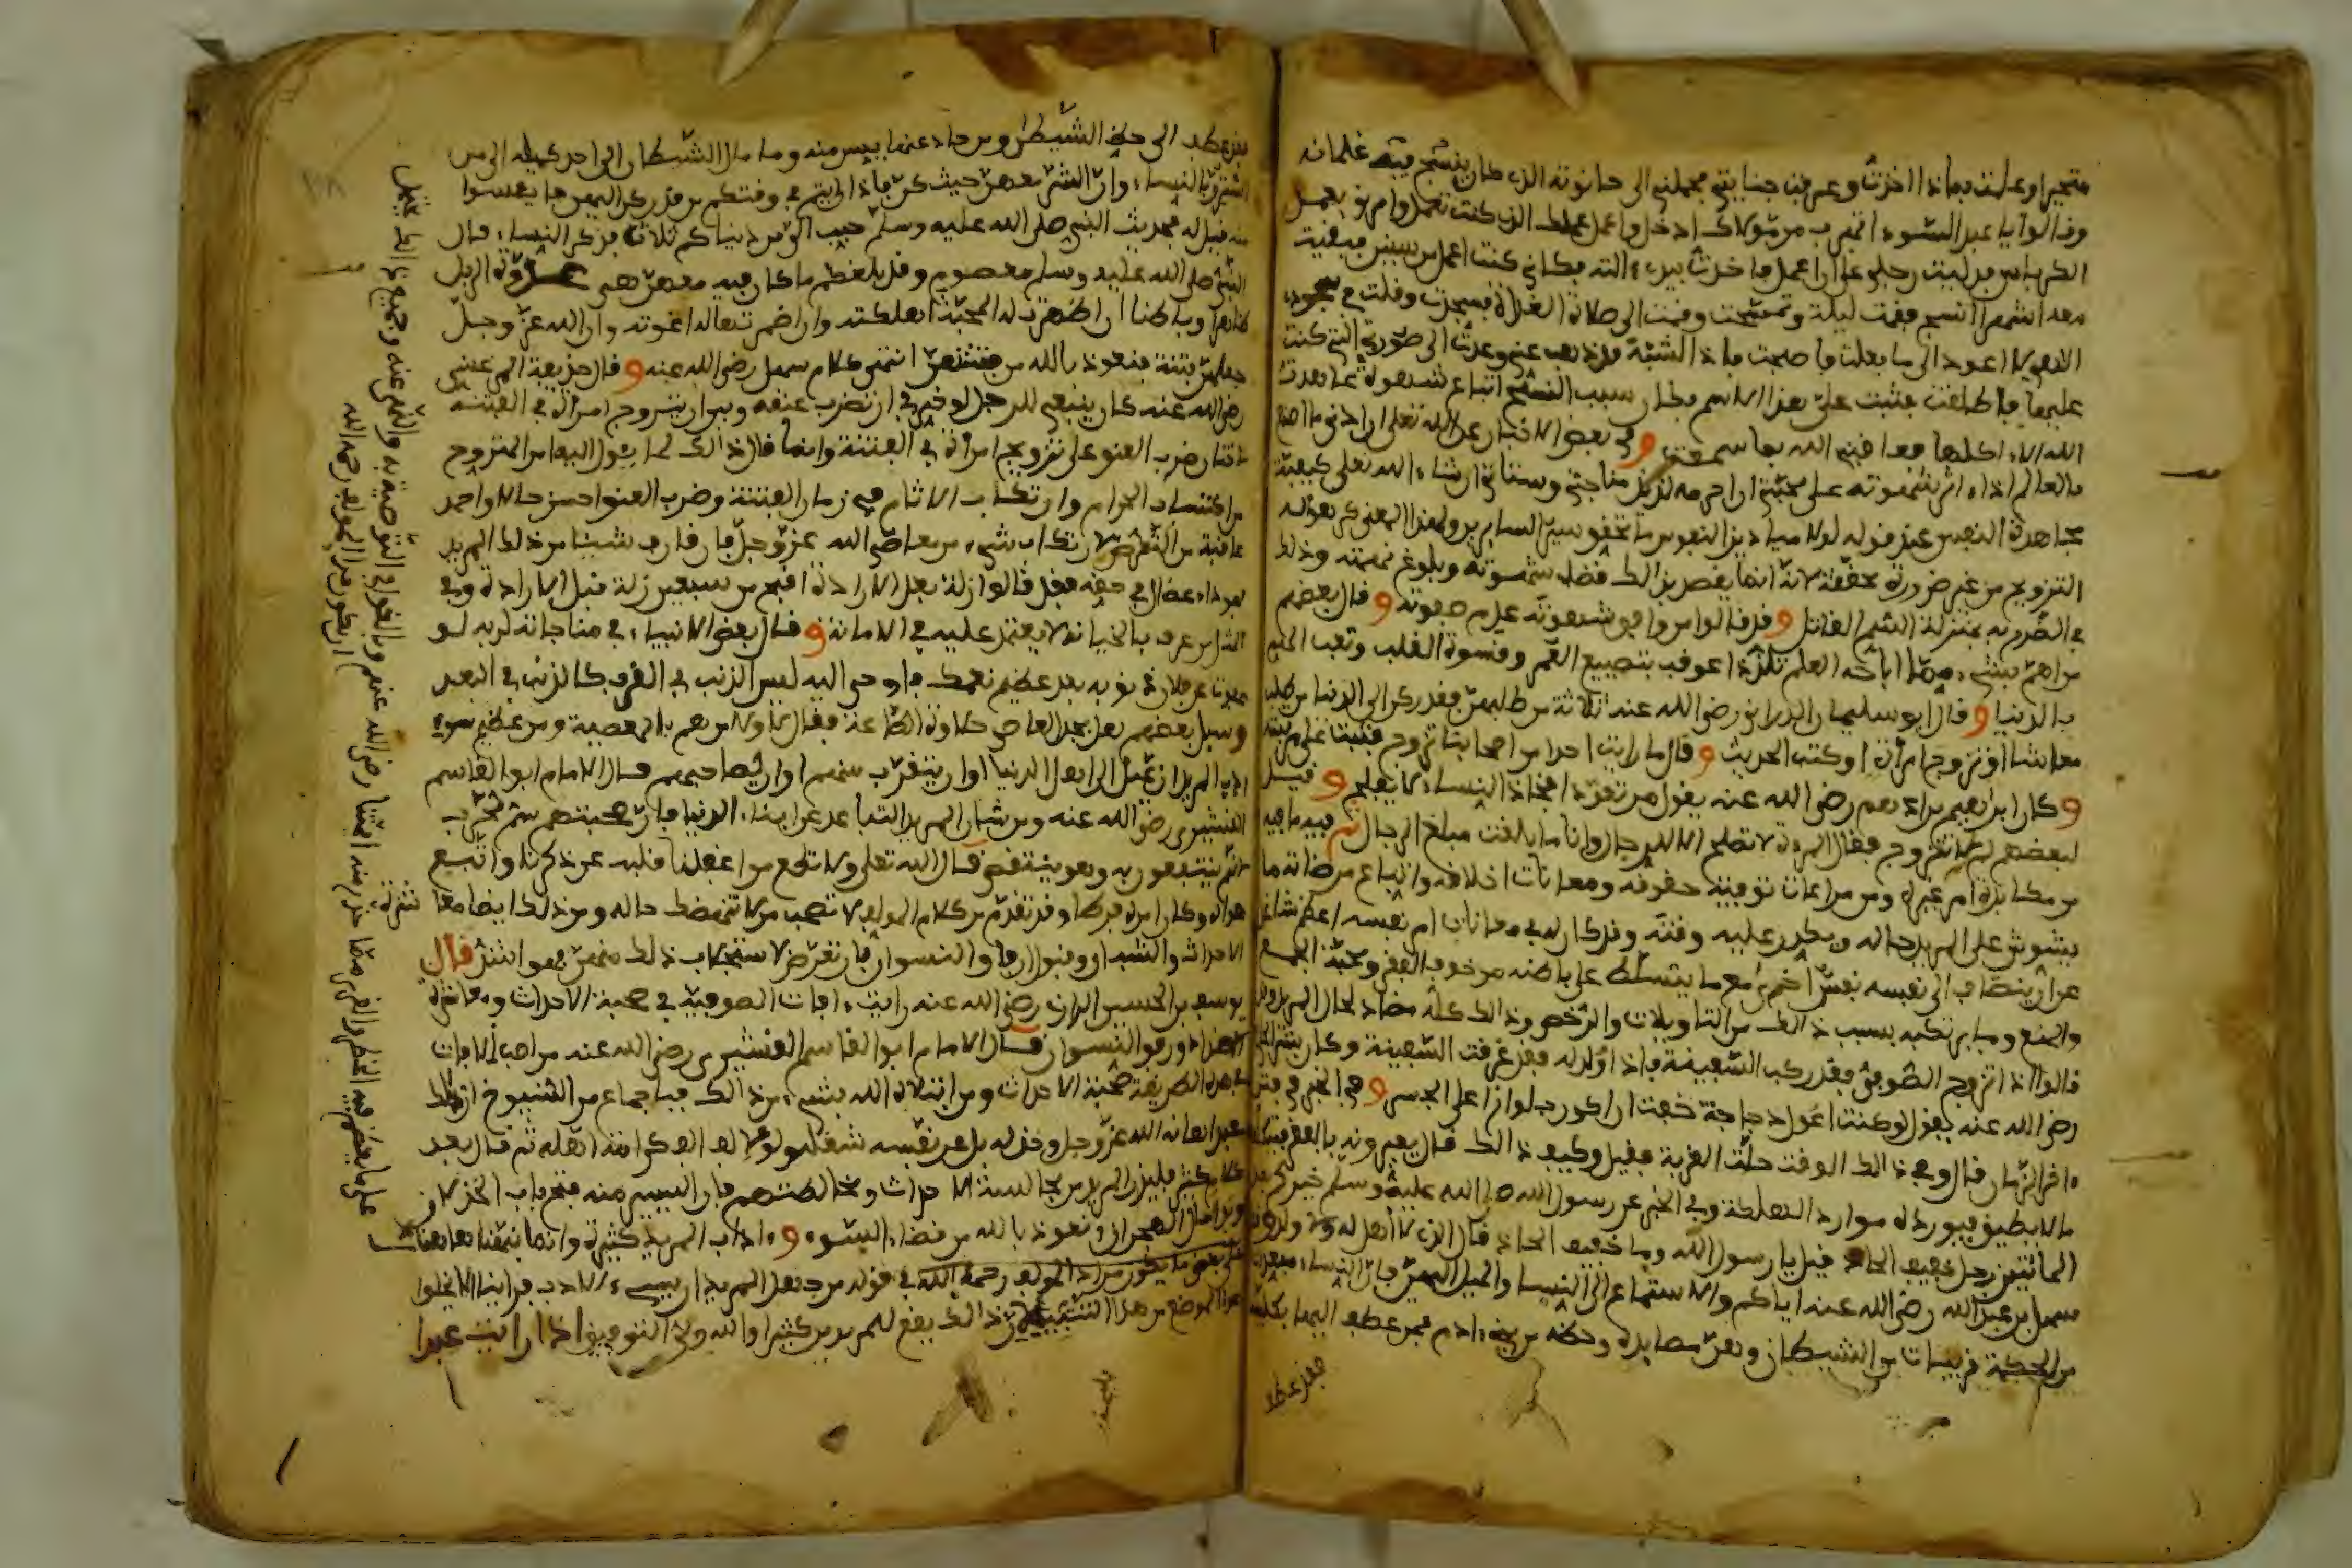 متحيرا وعلمت بماذا اخذت وعرفت جنايتي فحملني الى حانوته الذي كان ينسج فيه غلمانه
وقالوا يا عبد السوء تهرب من مولاك ادخل واعمل عملك الذي كنت تعمل وامرني بعمل
الكرباس فدليت رجلي على ان اعمل فاخذت بيدي ءالته فكاني كنت اعمل من سنين فبقيت
معه اشهرا انسج فقمت ليلة وتمسحت وقمت الى صلاة الغداة فسجدت وقلت في سجودي
الاهي لا اعود الى ما فعلت فاصبحت فاذا الشبه قد ذهب عني وعدت الى صورتي التي كنت
عليها فاطلقت فثبت علي هذا الاسم فكان سبب النسج اتباع شهوة عاهدت
الله الا اكلها فعاقبني الله بما سمعت وفي بعض الاخبار عن الله تعلى ان ادنى ما اصنع
بالعالم اذا ءاثر شهوته على محبتي ان احرمه لذيذ مناجاتي وستاتي ان شاء الله تعلى كيفية
مجاهدة النفس عند قوله لولا ميادين النفوس ما تحقق سير السايرين
التزويج من غير ضرورة محققة لانه انما يقصد بذالك قضاء شهوته وبلوغ نهمته وذلك
في الضرر به بمنزلة السم القاتل وقد قالوا من وافق شهوته عدم صفوته وقال بعضهم
من اهم بشيء مما اباحه العلم تلذذا عوقب بتضييع العمر وقسوة القلب وتعب الهم
بالدنيا وقال ابو سليمان الداراني رضي الله عنه ثلاثة من طلبهن فقد ركن الى الدنيا من طلب
معاشا او تزوج امراة او كتب الحديث وقال ما رايت احدا من اصحابنا تزوج فثبت على مرتبته
وكان ابراهيم بن ادهم رضي الله عنه يقول من تعود افخاذ النساء لا يفلح وقيل
لبعضهم لم لا تتزوج فقال المرءة لا تصلح الا للرجال وانا ما بلغت مبلغ الرجال ثم فيه ما فيه
من مكابدة امر غيره ومن مراعات توفية حقوقه ومعانات اخلاقه واتباع مرضاته ما
يشوش على المريد حاله ويكدر عليه وقته وقد كان له في معانات امر نفسه اعظم شاغل
عن ان ينضاف الى نفسه نفس اخرى مع ما يتسلط على باطنه من خوف الفقر ومحبة الجمع
والمنع وما يرتكبه بسبب ذالك من التاويلات والرخص وذالك كله مضاد لحال المريد
قالوا اذا تزوج الصوفي فقد ركب السفينة فاذا ولد له فقد غرقت السفينة وكان بشر
رضي الله عنه يقول لو كنت اعول دجاجة خفت ان اكون جلوازا على الجسر وفي الخبر
ءاخر الزمان قال وفي ذالك الوقت حلت العزبة فقيل وكيف ذالك قال يعيرونه بالفقر
ما لا يطيق فيورده موارد الهلكة وفي الخبر عن رسول الله صلى الله عليه وسلم خيركم بعد
المائتين رجل خفيف الحاذ قيل يا رسول الله وما خفيف الحاذ قال الذي لا اهل له ولا ولد
سهل بن عبد الله رضي الله عنه اياكم والاستماع الى النساء والميل اليهن فان النساء مبعدات
من الحكمة قريبات من الشيطان وهن مصايده وحظه من بني ءادم فمن عطف اليهن بكليته
فقد عطف
فقد عطف الى حظ الشيطان ومن حاد عنهن ييس منه وما مال الشيطان الى احد كميله الى من
استرق بالنساء وان الشر معهن حيث كن فاذا رايتم في وقتكم من قد ركن اليهن فايئسوا
منه قيل له فحديث النبي صلى الله عليه وسلم حبب الي من دنياكم ثلاث فذكر النساء قال
النبي صلى الله عليه وسلم معصوم وقد بلغكم ما كان فيه معهن هي عدوة الرجل
ظاهرا وباطنا ان اظهرت له المحبة اهلكته وان اضمرتها له اغوته وان الله عز وجل
جعلهن فتنة فنعوذ بالله من فتنتهن انتهى كلام سهل رضي الله عنه وقال حذيفة المرعشي
رضي الله عنه كان ينبغي للرجل لو خير بين ان تضرب عنقه وبين ان يتزوج امراة في الفتنة
لاختار ضرب العنق على تزويج امراة في الفتنة وانما قال ذالك لما يئول اليه امر المتزوج
من اكتساب الحرام وارتكاب الاثام في زمان الفتنة وضرب العنق احسن حالا واحمد
عاقبة من التعرض لارتكاب شيء من معاصي الله عز وجل فان قارف شيئا من ذلك المريد
فهو داء عضال في حقه فقد قالوا زلة بعد الارادة اقبح من سبعين زلة قبل الارادة وفي
المثل من عرف بالخيانة لا يعتمد عليه في الامانة وقال بعض الانبياء في مناجاته لربه لو
عفوت عن فلان في ذنوبه بعد عظيم نعمتك فاوحى اليه ليس الذنب في القرب كالذنب في البعد
وسيل بعضهم هل يجد العاصي حلاوة الطاعة فقال لا ولا من هم بالمعصية ومن عظيم سوء
ادب المريد ان يميل الى اهل الدنيا او ان يتقرب منهم او ان يصاحبهم قال الامام ابو القاسم
القشيري رضي الله عنه ومن شان المريد التباعد عن ابناء الدنيا فان صحبتهم سم مجرب
لانهم ينتفعون به وهو ينقص قال الله تعلى ولا تطع من اغفلنا قلبه عن ذكرنا واتبع
هواه وكان امره فرطا وقد تقدم من كلام المولف لا تصحب من لا ينهضك حاله ومن ذلك ايضا
الاحداث والشبان وقبول ارفاق النسوان فان تعرض لاستجلاب ذلك منهن فهو اشد قال
يوسف بن الحسين الرازي رضي الله عنه رايت ءافات الصوفية في صحبة الاحداث ومعاشرة
الاضداد ورفق النسوان قال الامام ابو القاسم القشيري رضي الله عنه من اصعب الافات
في هذه الطريقة صحبة الاحداث ومن ابتلاه الله بشيء من ذالك فباجماع من الشيوخ ان ذلك
عبد اهانه الله عز وجل وخذله بل عن نفسه شغله ولو بالف الف كرامة اهله ثم قال بعد
كلام كثير فليحذر المريد من مجالسة الاحداث ومخالطتهم فان اليسير منه فتح باب الخذلان
وبدا حال الهجران ونعوذ بالله من قضاء السوء وءاداب المريد كثيرة وانما نبهنا هاهنا
على بعض ما يكون مراد المولف رحمه الله في قوله من جهل المريد ان يسيء الادب فراينا الا نخلوا
هذا الموضع من هذا التنبيه لان ذالك يقع للمريدين كثيرا والله ولي التوفيق اذا رايت عبدا